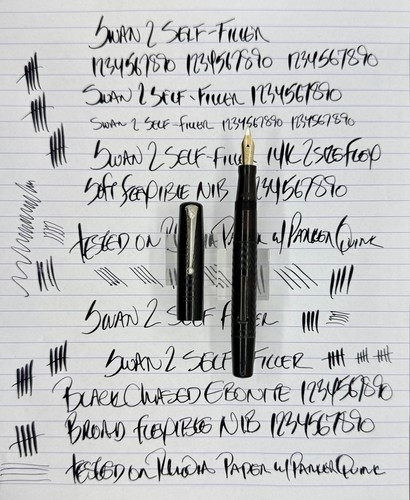 SWAN 2 SELF-FILLER
1234567890 1234567890 1234567890
SWAN 2 SELF-FILLER 1234567890
SWAN 2 SELF-FILLER 1234567890 1234567890
SWAN 2 SELF-FILL 14K 2 SIZE FLEXP
SOFT FLEXIBLE NIB 1234567890
TESTED ON RHODIA PAPER w/ PARKER QUINK
SWAN 2 SELF FILLER
SWAN 2 SELF FILLER
BLACK CHASED EBONITE 1234567890
BROAD FLEXIBLE NIB 1234567890
TESTED ON RHODIA PAPER w/ PARKER QUINK